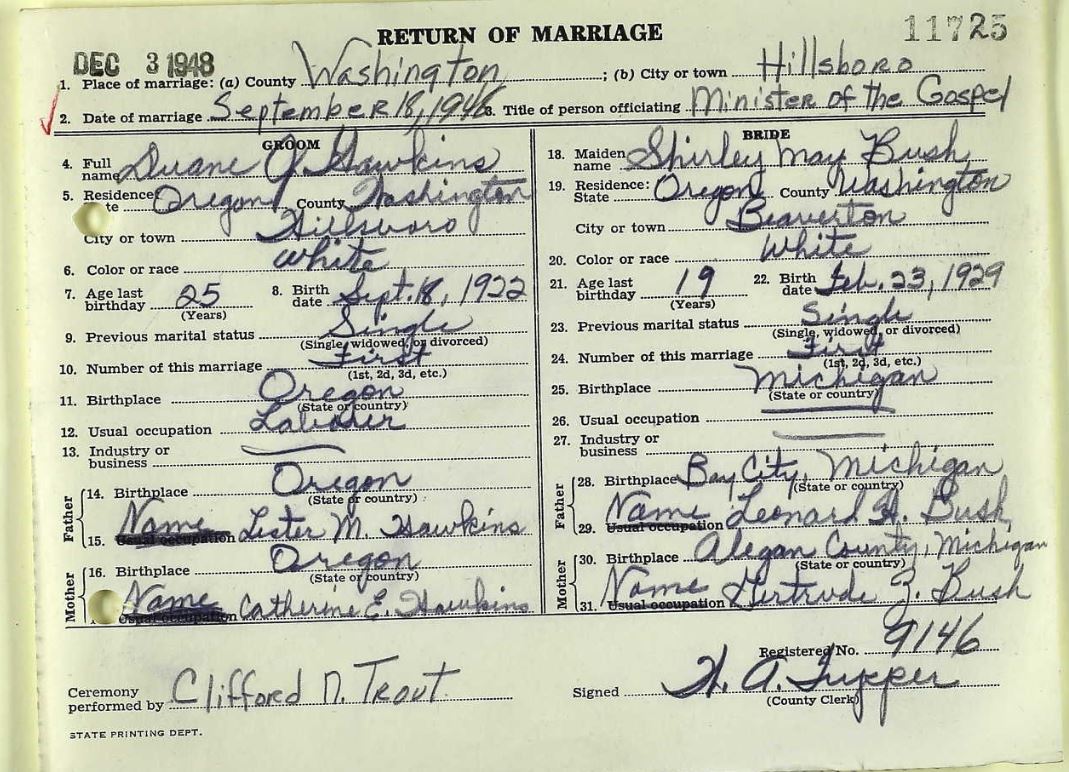 RETURN OF MARRIAGE 11725
DEC 3 1948
1. Place of marriage: (a) County Washington ; (b) City or town Hillsboro
2. Date of marriage September 18, 1948 3. Title of person officiating Minister of the Gospel
GROOM
4. Full name Duane J. Hawkins
5. Residence: Oregon County Washington
City or town Hillsboro
6. Color or race White
7. Age last birthday 25 (Years) 8. Birth date Sept. 18, 1922
9. Previous marital status Single (Single, widowed, or divorced)
10. Number of this marriage First (1st, 2d, 3d, etc.)
11. Birthplace Oregon (State or country)
12. Usual occupation Laborer
13. Industry or business
Father
14. Birthplace Oregon (State or country)
15. Usual occupation Name Lester M. Hawkins
Mother
16. Birthplace Oregon (State or country)
Usual occupation Name Catherine E. Hawkins
BRIDE
18. Maiden name Shirley May Bush
19. Residence: State Oregon County Washington
City or town Beaverton
20. Color or race White
21. Age last birthday 19 (Years) 22. Birth date Feb. 23, 1929
23. Previous marital status Single (Single, widowed, or divorced)
24. Number of this marriage First (1st, 2d, 3d, etc.)
25. Birthplace Michigan (State or country)
26. Usual occupation
27. Industry or business
Father
28. Birthplace Bay City, Michigan (State or country)
29. Usual occupation Name Leonard H. Bush
Mother
30. Birthplace Alegan County, Michigan (State or country)
31. Usual occupation Name Gertrude Z. Bush
Registered No. 9146
Ceremony performed by Clifford N. Trout
Signed H. A. Tupper
(County Clerk)
STATE PRINTING DEPT.